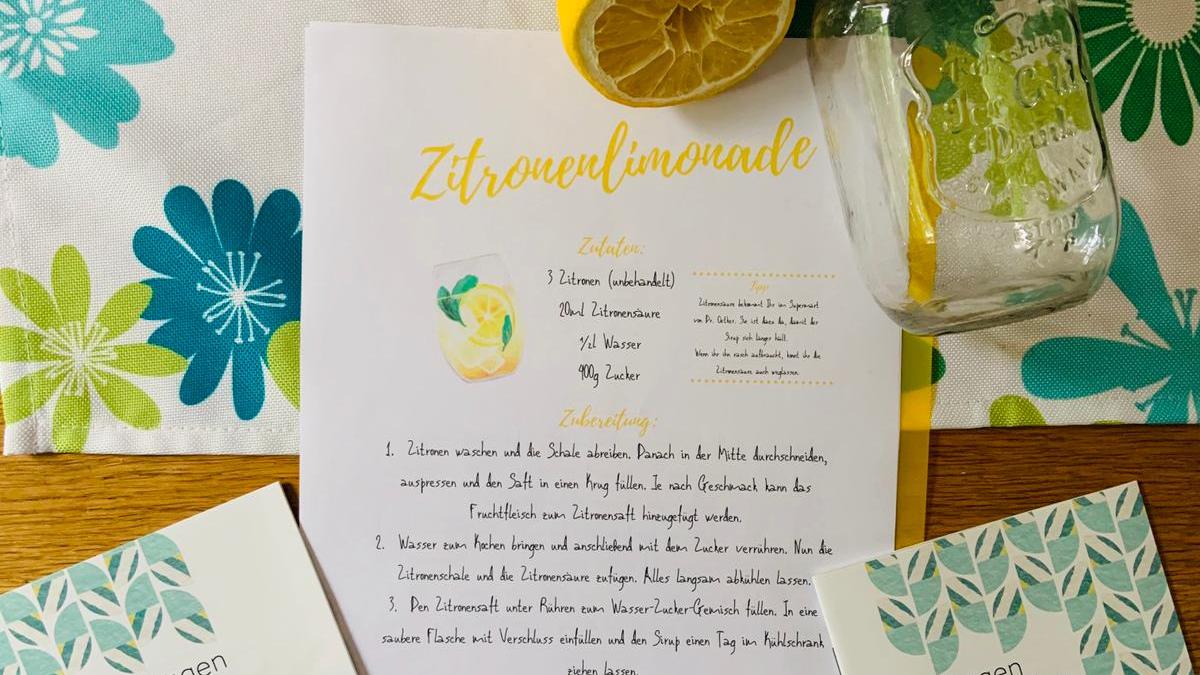 Zitronenlimonade
Zutaten:
3 Zitronen (unbehandelt)
20ml Zitronensäure
1/2l Wasser
900g Zucker
Tipp:
Zitronensäure bekommt Ihr im Supermarkt
von Dr. Oetker. Sie ist dazu da, damit der
Sirup sich länger hält.
Wenn ihr ihn rasch aufbraucht, könnt ihr die
Zitronensäure auch weglassen.
Zubereitung:
1. Zitronen waschen und die Schale abreiben. Danach in der Mitte durchschneiden,
auspressen und den Saft in einen Krug füllen. Je nach Geschmack kann das
Fruchtfleisch zum Zitronensaft hinzugefügt werden.
2. Wasser zum Kochen bringen und anschließend mit dem Zucker verrühren. Nun die
Zitronenschale und die Zitronensäure zufügen. Alles langsam abkühlen lassen.
3. Den Zitronensaft unter Rühren zum Wasser-Zucker-Gemisch füllen. In eine
saubere Flasche mit Verschluss einfüllen und den Sirup einen Tag im Kühlschrank
ziehen lassen.